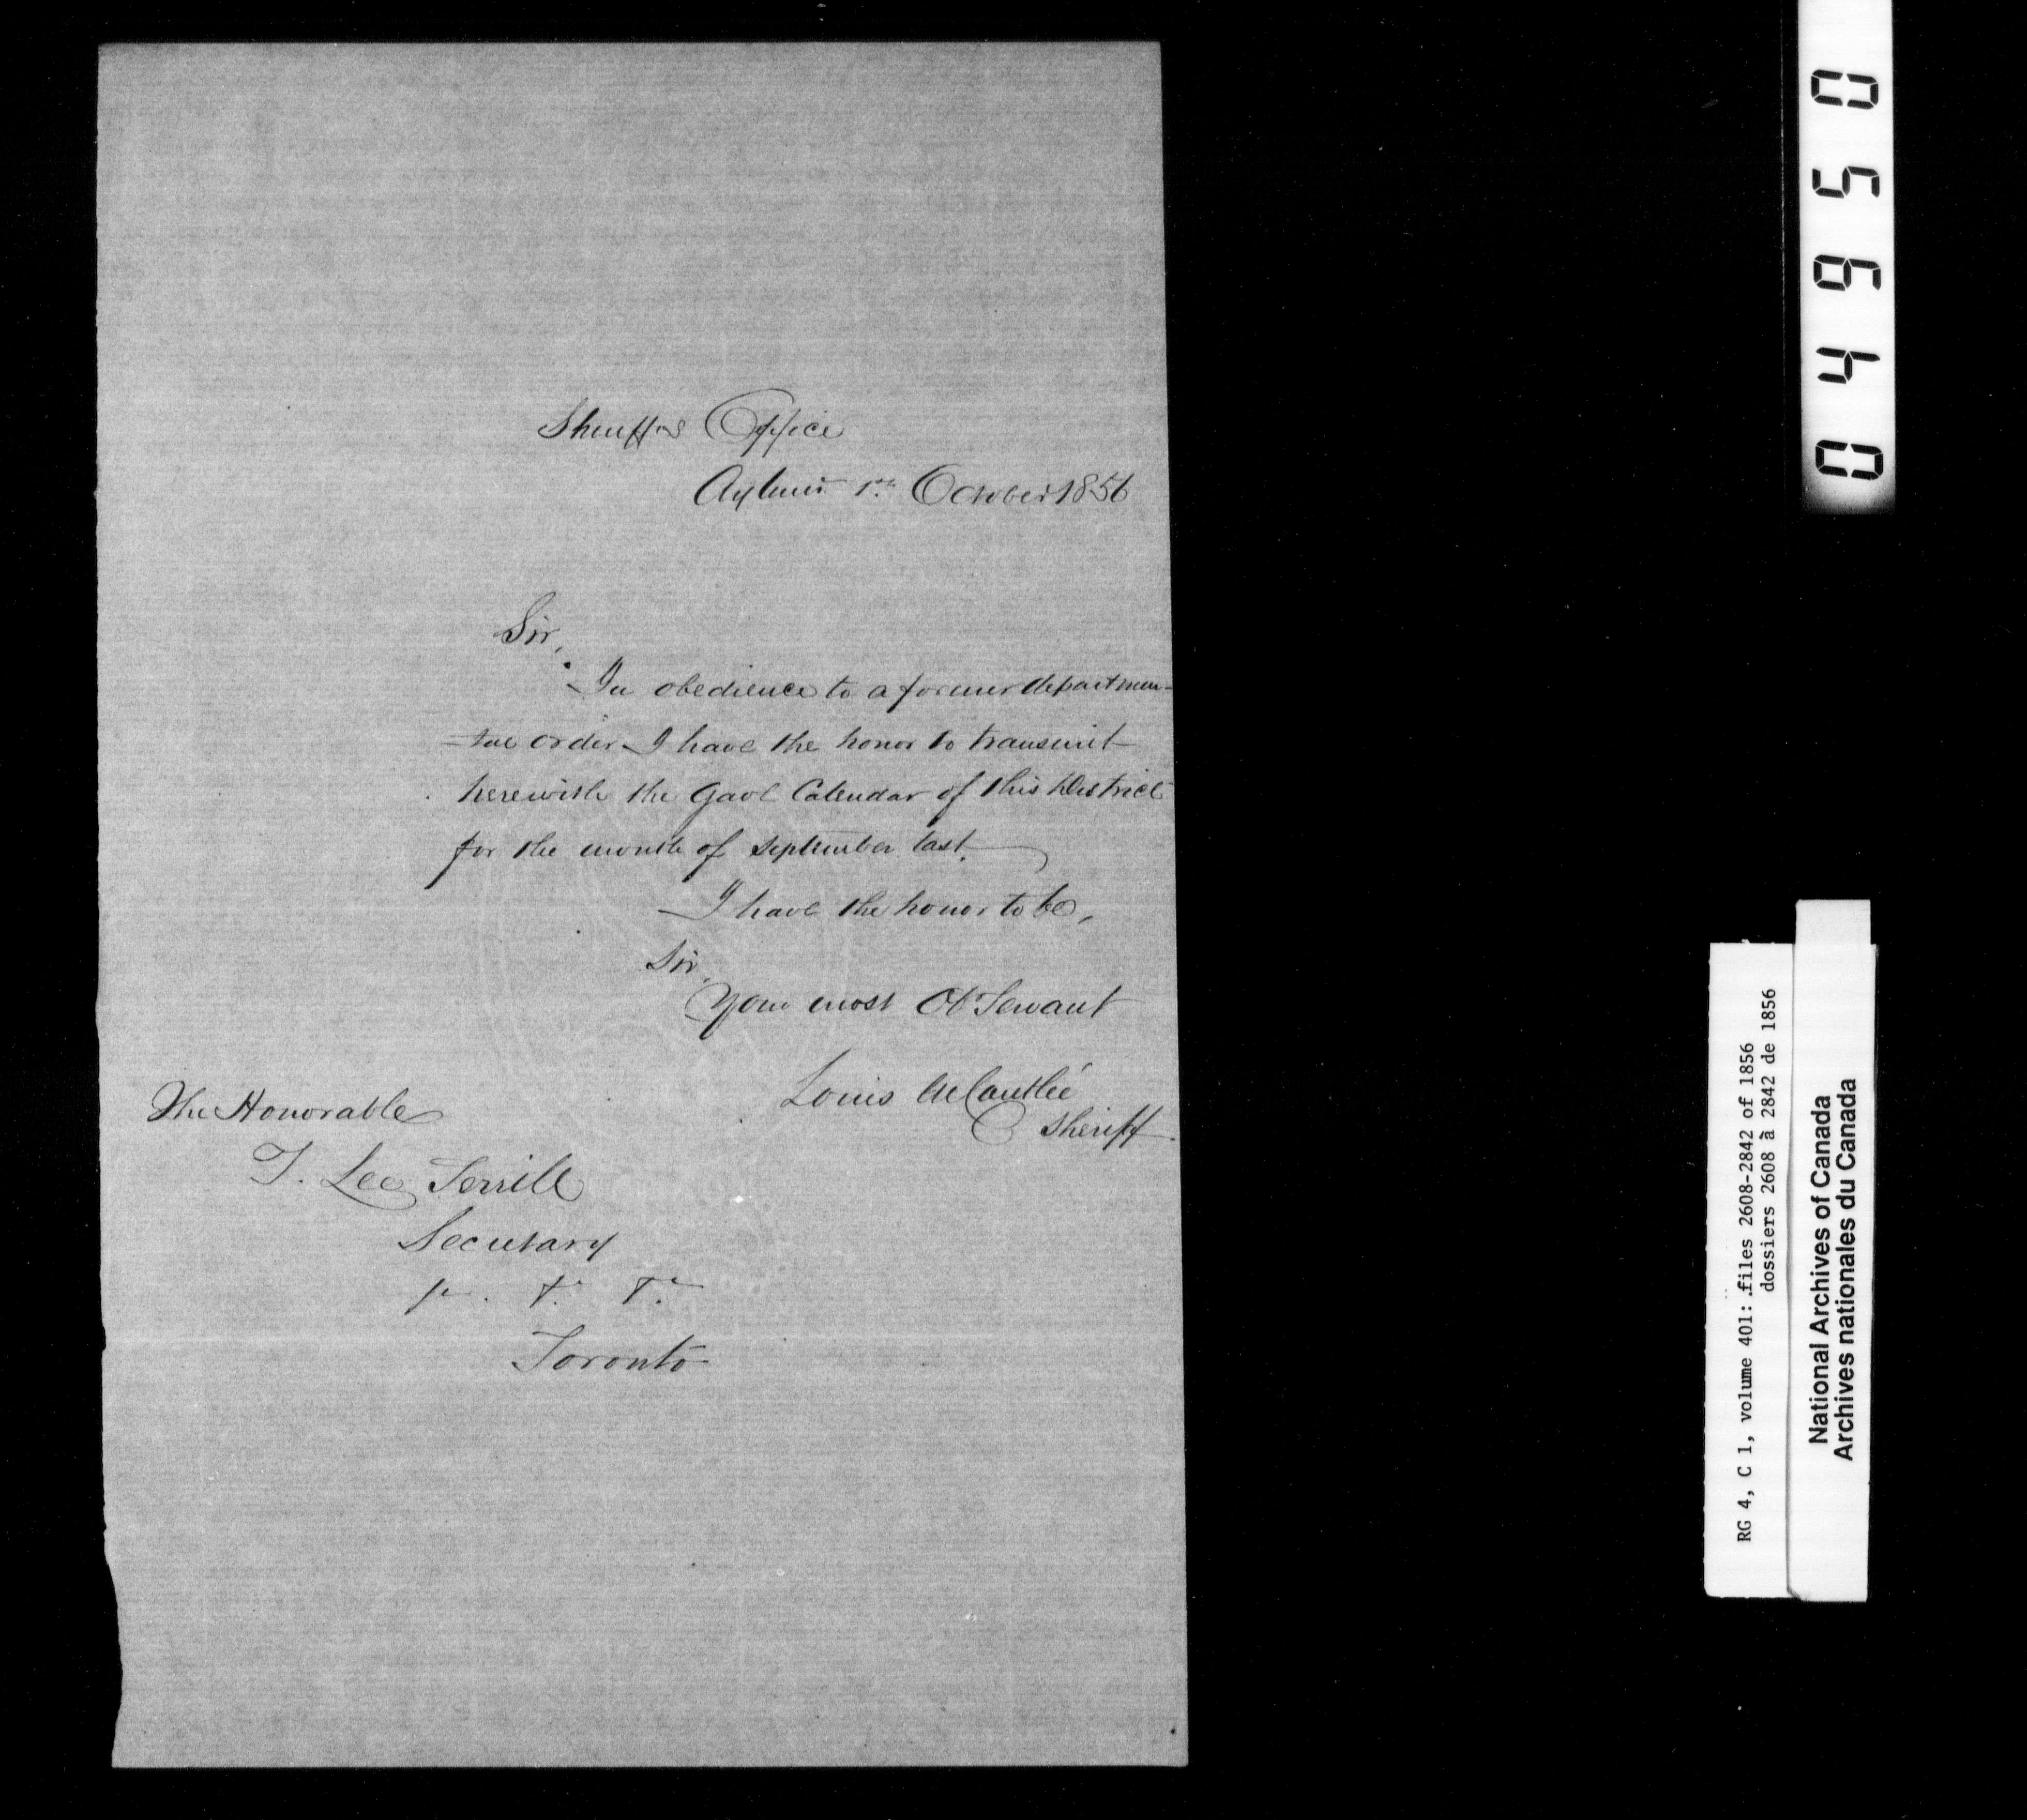 Sheriffs Office
Aylmer 1st October 1856
Sir,
In obedience to a former departmen-
-tal order I have the honor to transmit
herewith the Gaol Calendar of this District
for the month of September last.
I have the honor to be,
Sir,
Your most Ob Servant
Louis
Sheriff
The Honorable
T. Lee Terrill
Secretary
Toronto
04950
RG 4, C 1, volume 401: files 2608-2842 of 1856
dossiers 2608 à 2842 de 1856
National Archives of Canada
Archives nationales du Canada